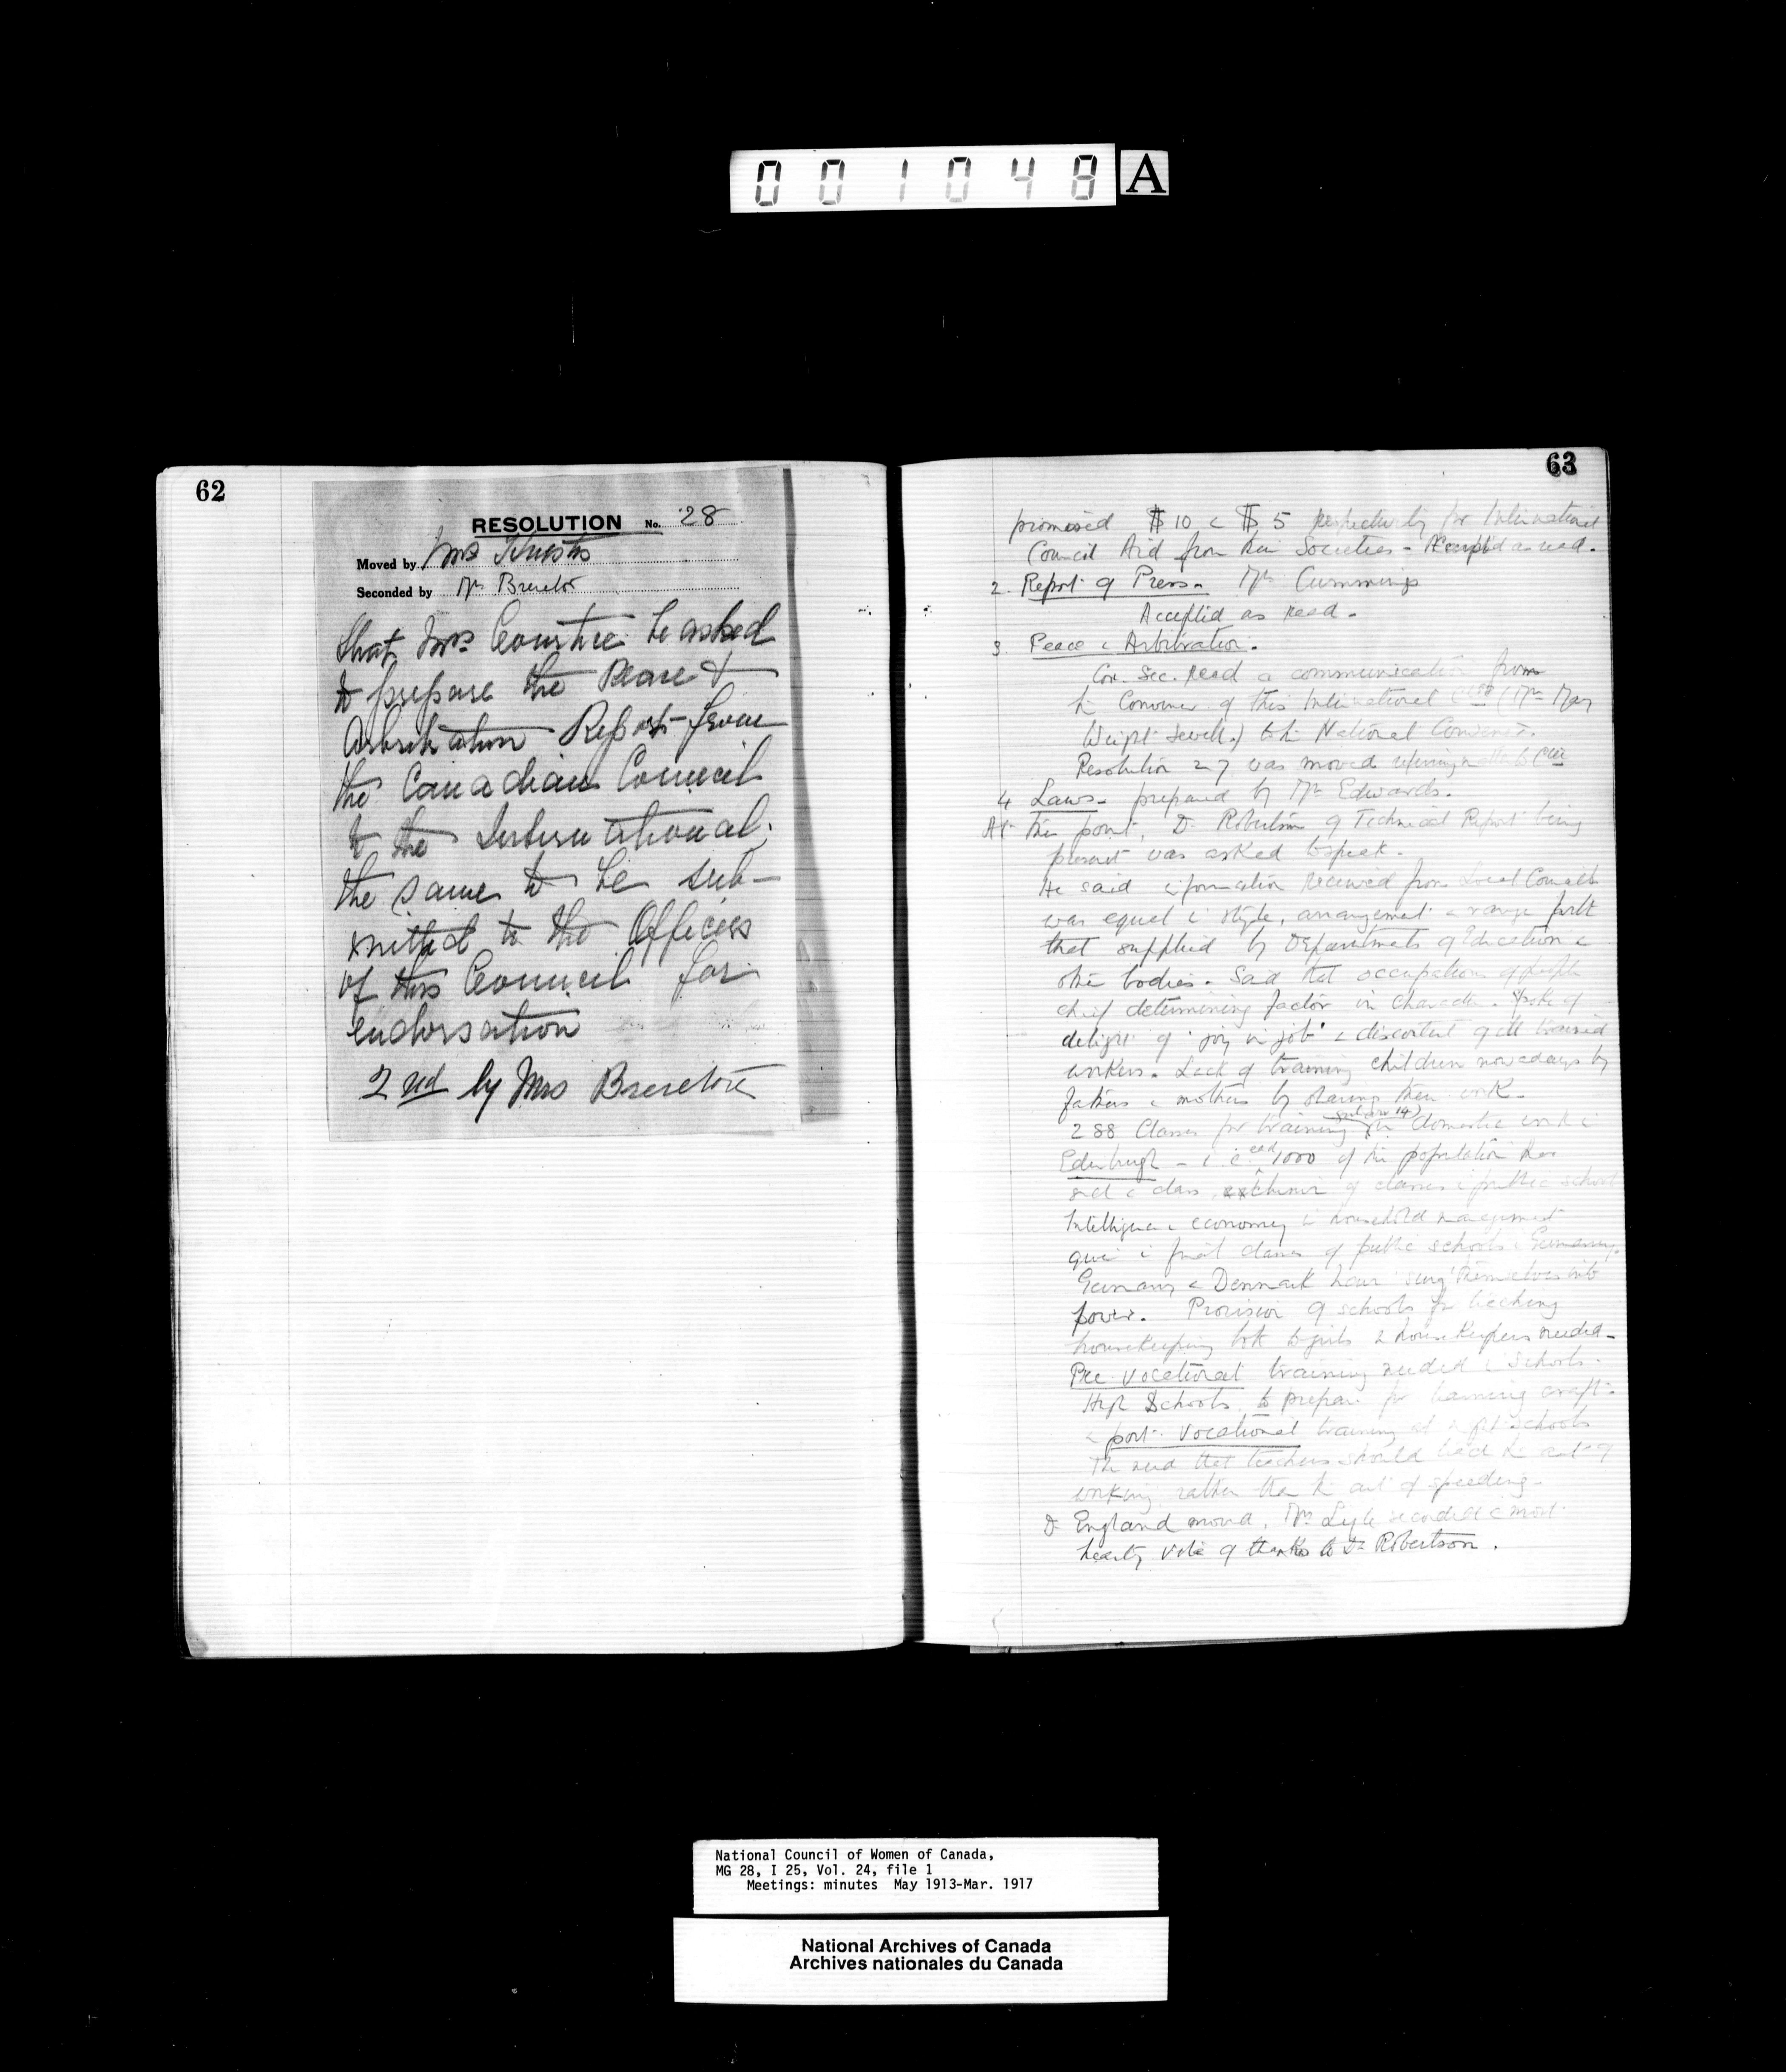 001048 A
62
RESOLUTION No. 28
Moved by Mrs
Seconded by Mrs Brereton
that Mrs Courtice be asked
to prepare the Peace &
Arbitration Report from
the Canadian Council
to the International;
the same to be sub-
mitted to the Officers
of this Council for
endorsation
2nd by Mrs Brereton
63
promised $10 & $5 respectively for International
Council Aid from their Societies - Accepted as read.
2. Report of Press. Mrs Cummings
Accepted as read.
3 Peace & Arbitration.
Cor. Sec. read a communication from
the Convener of this International Ctee (Mrs May
Wright Sewell.) to the National Convener.
Resolution 27 was moved referring matter to Ctee
4 Laws - prepared by Mrs Edwards.
At this point, Dr Robertson of Technical Report being
present was asked to speak.
He said information received from Local Councils
was equal in style, arrangement & range with
that supplied by Departments of Education &
other bodies. Said that occupation of people
chief determining factor in character. Spoke of
delight of 'joy in job' & discontent of ill trained
workers. Lack of training children nowadays by
fathers & mothers by sharing their work.
288 Classes for training (girls over 14) in domestic work in
Edinburgh - i.e. each 1000 of the population has
such a class exclusive of classes in public school
Intelligence & economy in household management
given in final classes of public schools in Germany.
Germany & Denmark have 'sung' themselves into
power. Provision of schools for teaching
housekeeping both to girls & housekeepers needed -
Pre-vocational training needed in Schools.
High Schools to prepare for learning craft -
& post-vocational training at night schools
The need that teachers should teach the art of
working rather than the art of speeding.
Dr England moved, Mrs Lyle seconded a most
hearty vote of thanks to Dr Robertson.
National Council of Women of Canada,
MG 28, I 25, Vol. 24, file 1
Meetings: minutes May 1913-Mar. 1917
National Archives of Canada
Archives nationales du Canada